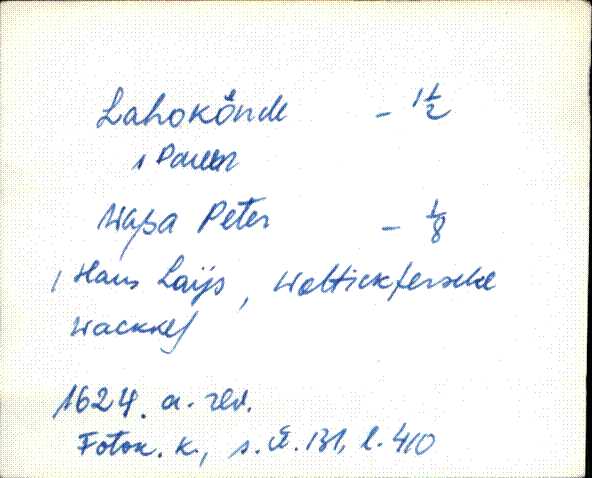 Lahokönde - 1 1/2
1 Pauer
Wapa Peter - 1/8
1 Hans Laijs, Woltickfersche
Wackkej
1624. a. rev.
Fotok. k., s. Ü. 131, l. 410